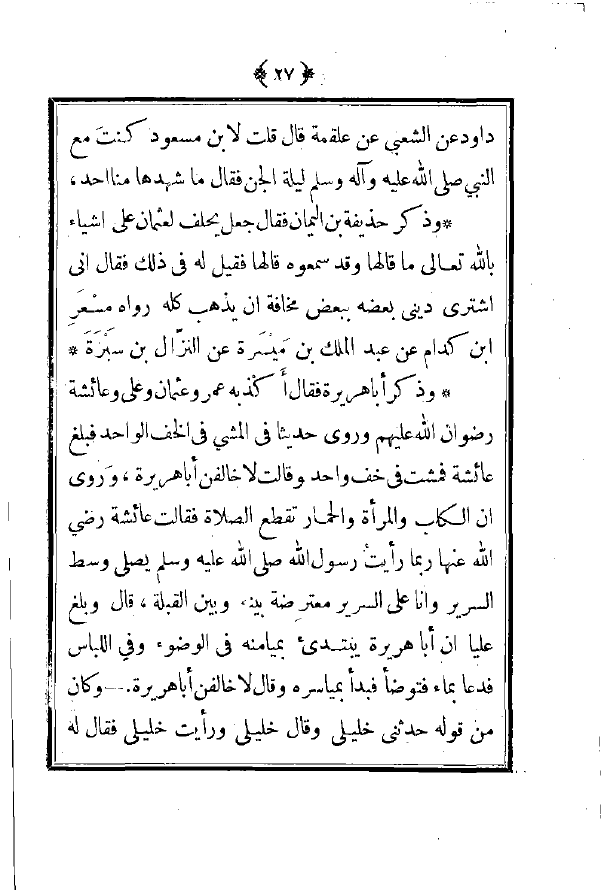 ﴿ ٢٧ ﴾
داود عن الشعبي عن علقمة قال قلت لابن مسعود كنتَ مع
النبي صلى الله عليه وآله وسلم ليلة الجن فقال ما شهدها منا احد ،
*وذكر حذيفة بن اليمان فقال جعل يحلف لعثمان على اشياء
بالله تعالى ما قالها وقد سمعوه قالها فقيل له فى ذلك فقال انى
اشترى دينى بعضه ببعض مخافة ان يذهب كله رواه مسْعَرِ
ابن كدام عن عبد الملك بن مَيْسَرة عن النزّال بن سَبْرَةَ *
* وذكر أبا هريرة فقال أَكْذبه عمر وعثمان وعلى وعائشة
رضوان الله عليهم وروى حديثا فى المشي فى الخف الواحد فبلغ
عائشة فمشت فى خف واحد وقالت لاخالفن أبا هريرة ، وَروى
ان الكاب والمرأة والحمار تقطع الصلاة فقالت عائشة رضي
الله عنها ربما رأيتُ رسول الله صلى الله عليه وسلم يصلى وسط
السرير وانا على السرير معترضة بينه وبين القبلة ، قال وبلغ
عليا ان أبا هريرة يبتدئ بميامنه فى الوضوء وفي اللباس
فدعا بماء فتوضأ فبدأ بمياسره وقال لاخالفن أبا هريرة .— وكان
من قوله حدثنى خليلى وقال خليلى ورأيت خليلى فقال له